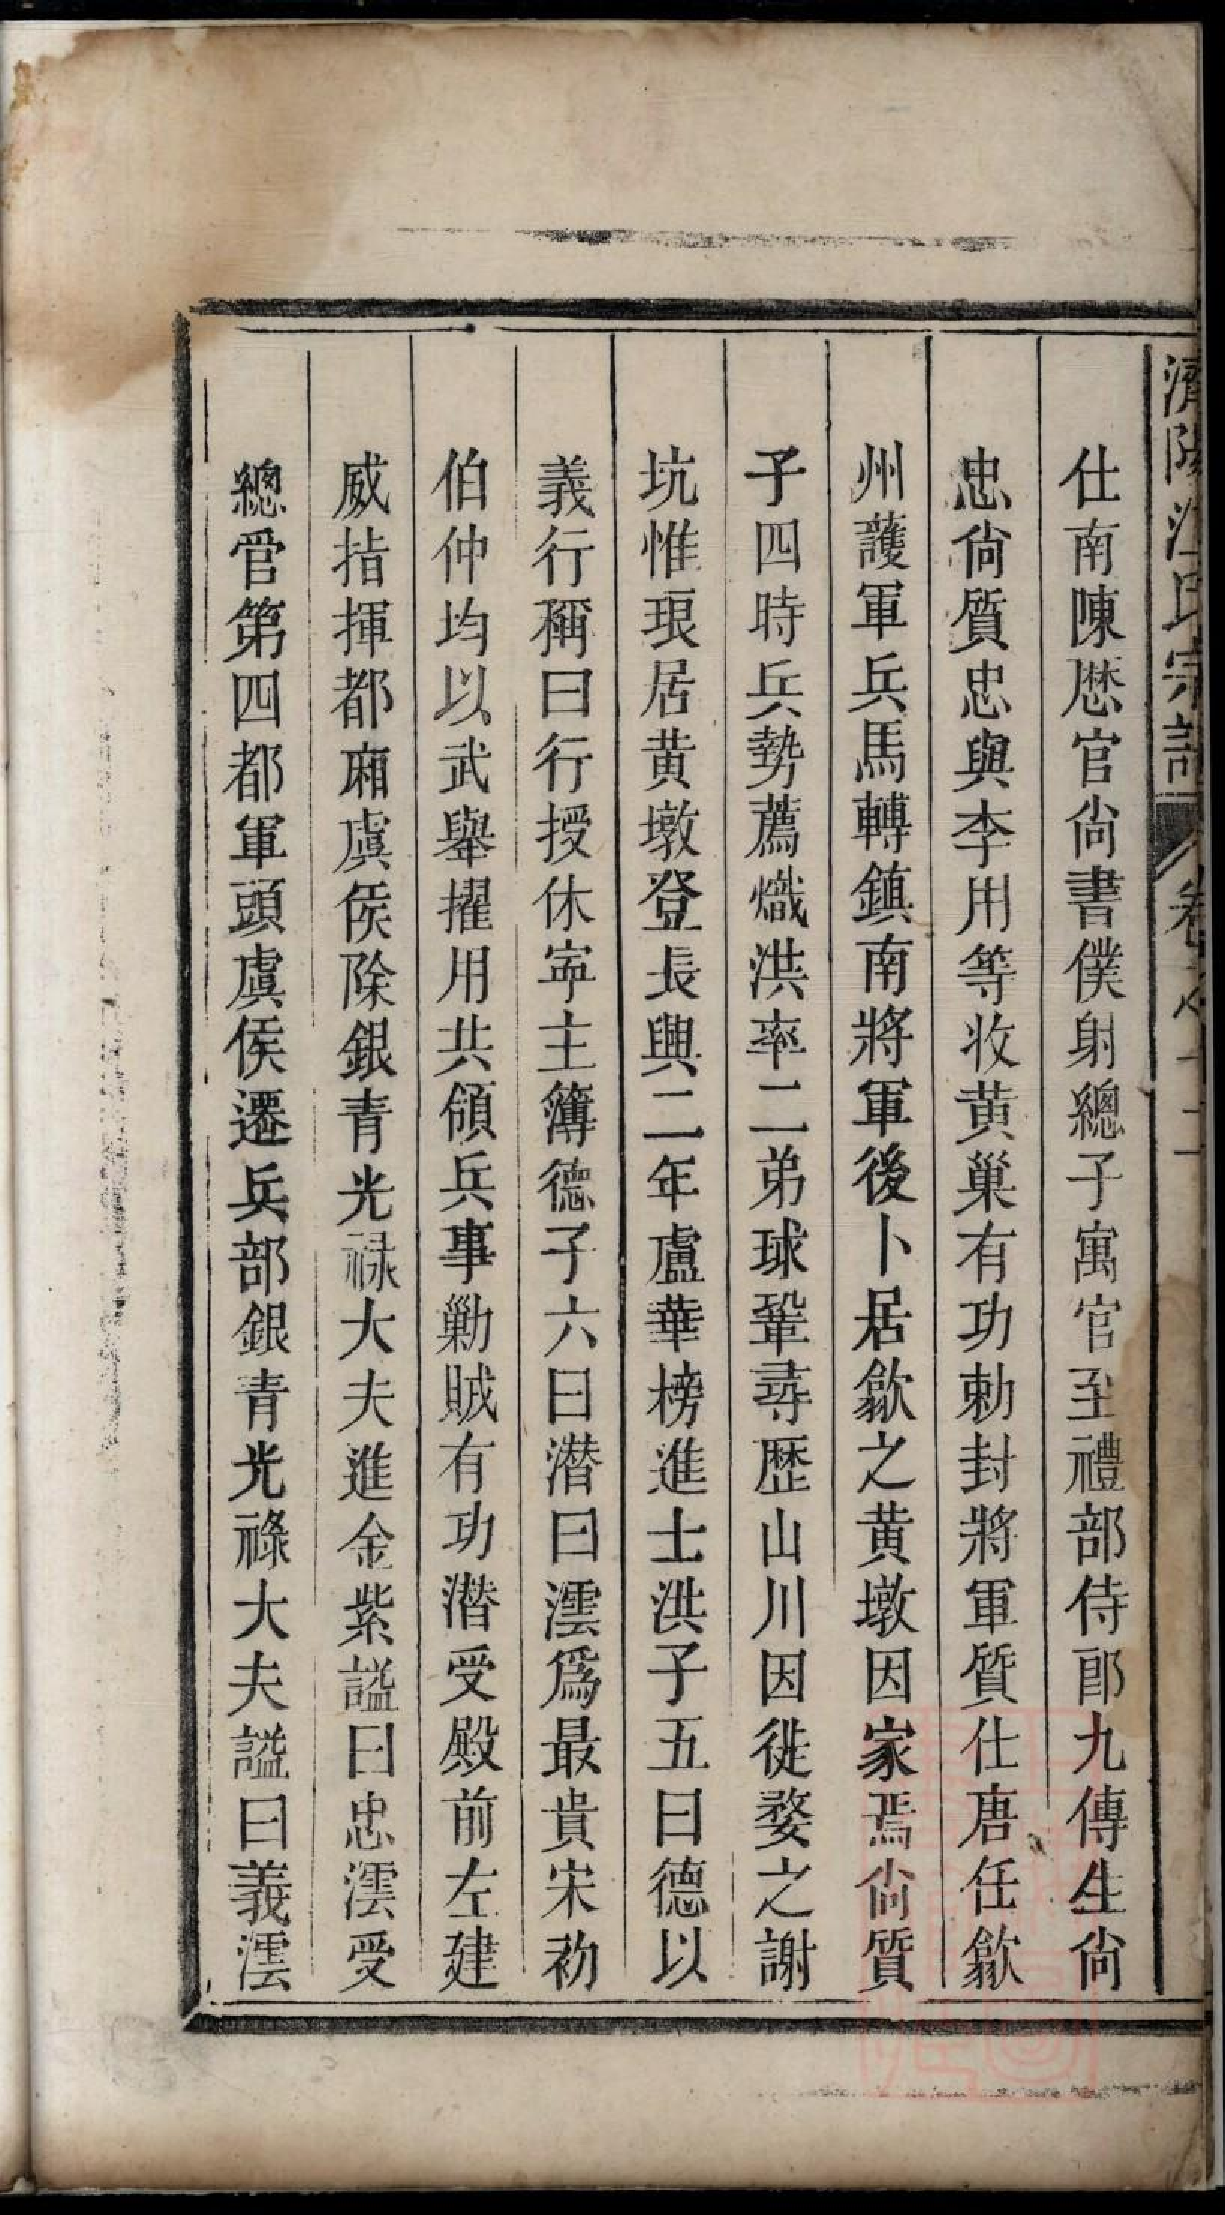 濟陽江氏宗譜
仕南陳歴官尙書僕射總子寓官至禮部侍郎九傳生尙
忠尙質忠與李用等收黄巢有功勅封將軍質仕唐任歙
州護軍兵馬轉鎮南將軍後卜居歙之黄墩因家焉尙質
子四時兵勢薦熾洪率二弟球鞏尋歷山川因徙婺之謝
坑惟琅居黄墩登長興二年盧華榜進士洪子五曰德以
義行稱曰行授休寧主簿德子六曰潛曰澐爲最貴宋初
伯仲均以武舉擢用共領兵事勦賊有功潛受殿前左建
威指揮都廂虞侯除銀青光禄大夫進金紫謚曰忠澐受
總官第四都軍頭虞侯遷兵部銀青光祿大夫謚曰義澐